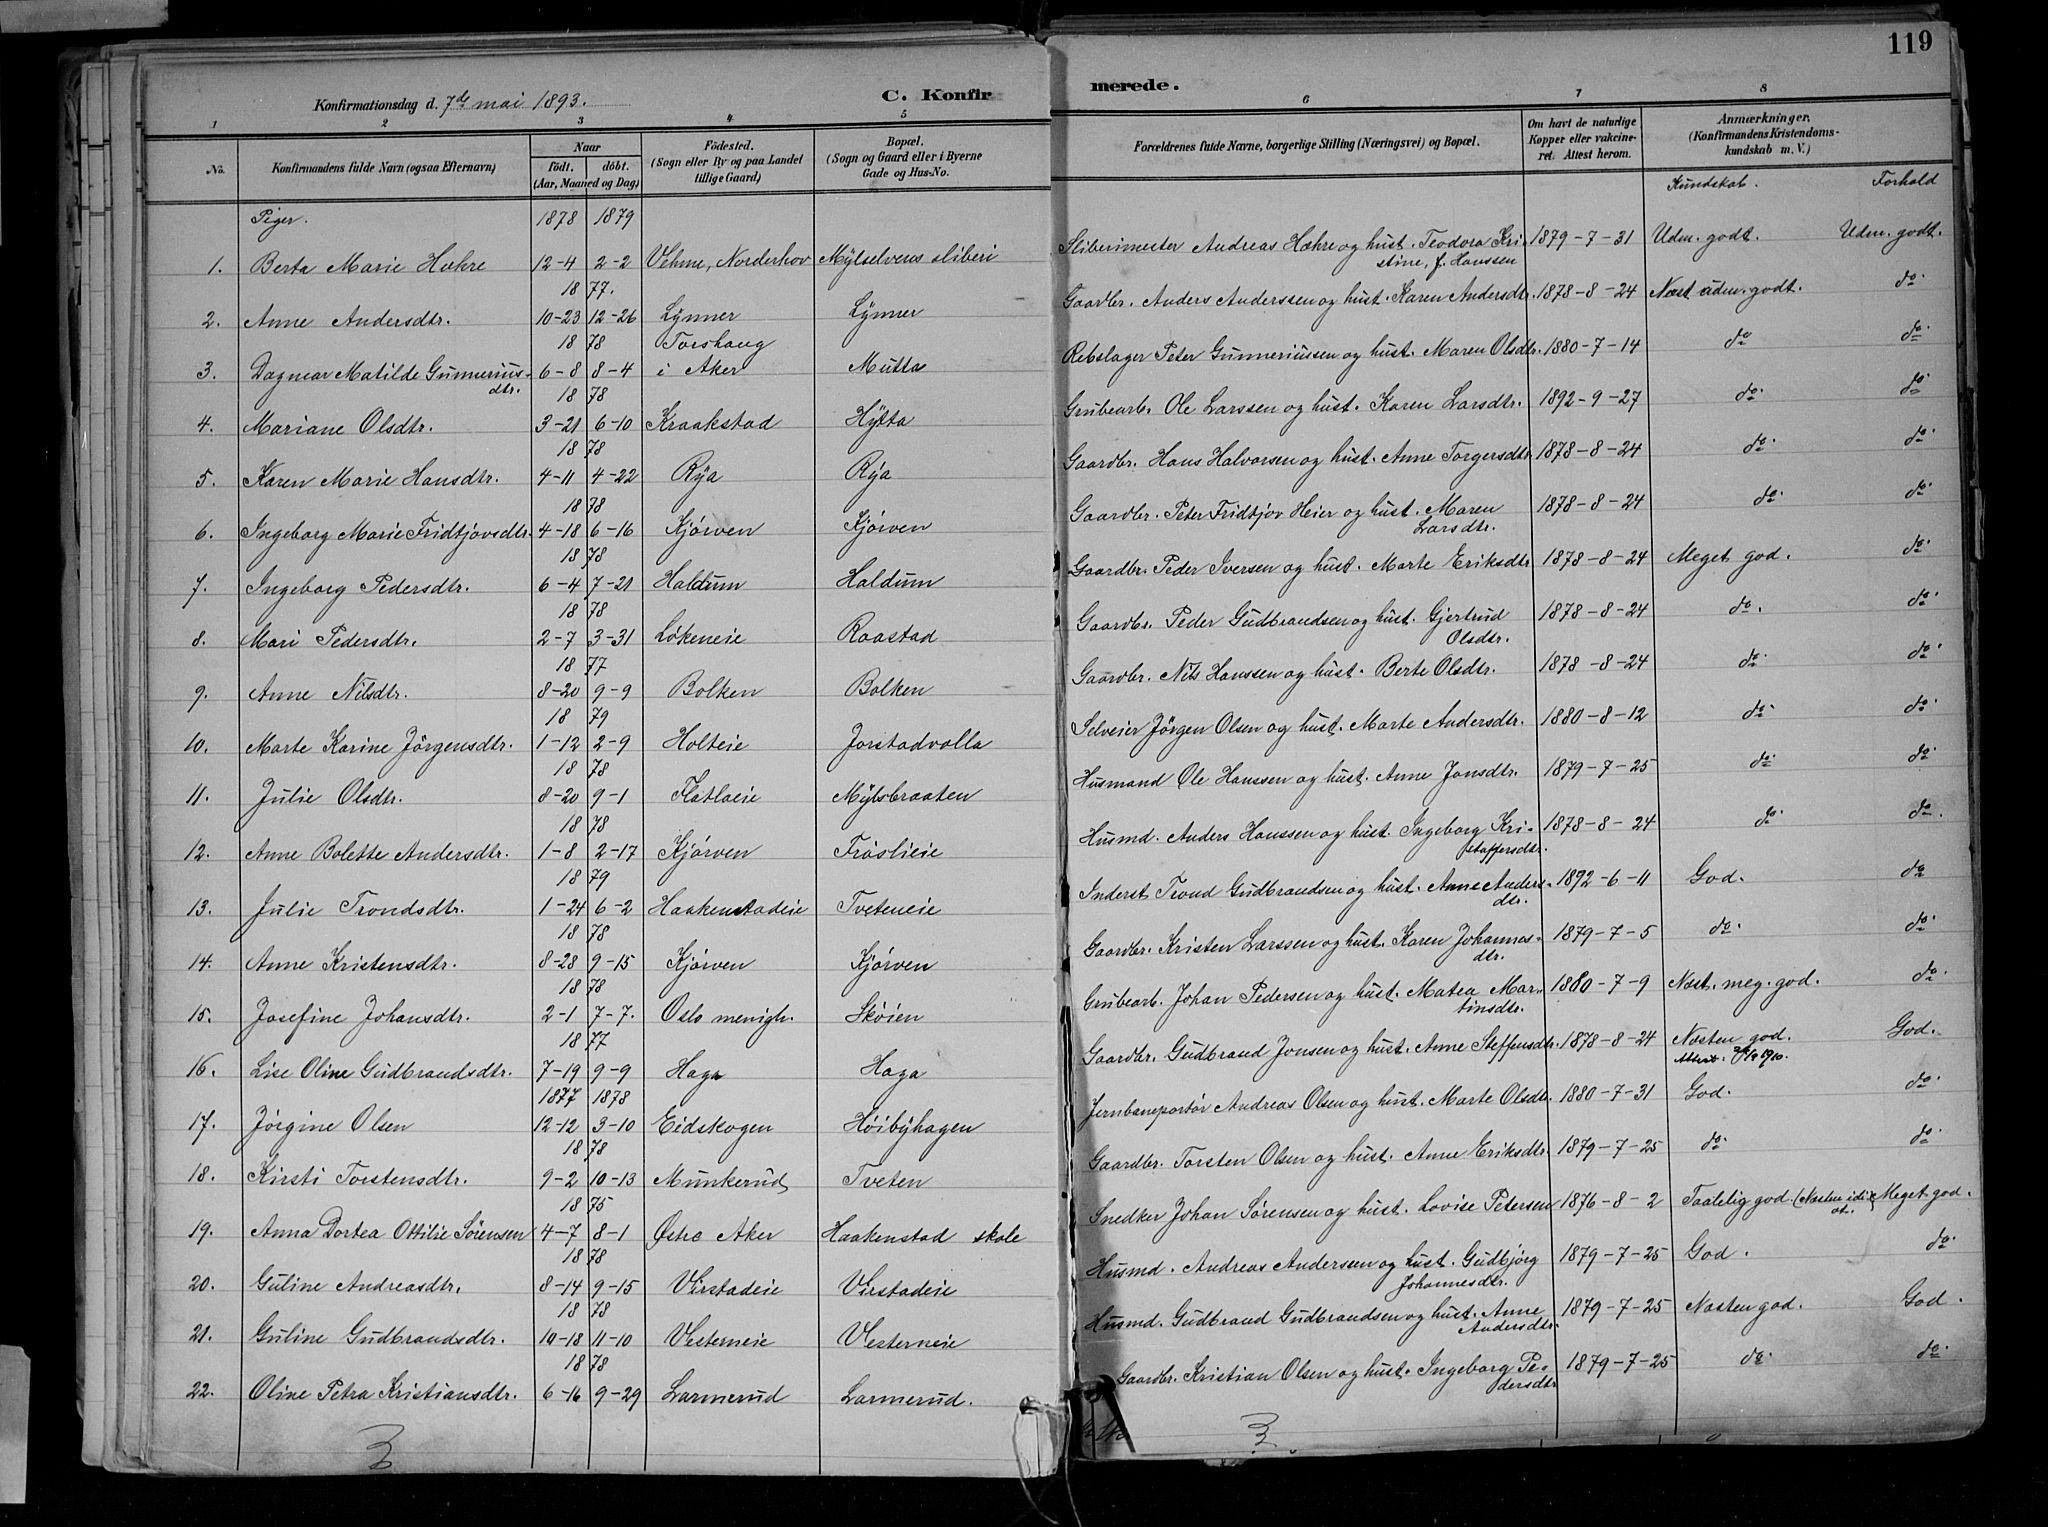 119
Konfirmationsdag d. 7de mai 1893. C. Konfirmerede.
1 2 3 4 5 6 7 8
No. Konfirmandens fulde Navn (ogsaa Efternavn) Naar Födt. döbt. (Aar, Maaned og Dag) Födested. (Sogn eller By og paa Landet tillige Gaard) Bopæl. (Sogn og Gaard eller i Byerne Gade og Hus-No. Forældrenes fulde Navne, borgerlige Stilling (Næringsvei) og Bopæl. Om havt de naturlige Kopper eller vakcineret. Attest herom. Anmærkninger. (Konfirmandens Kristendomskundskab m. V.)
Kundskab. Forhold
Piger. 1878 1879
1. Berta Marie Hæhre 12-4 2-2 Vehme, Norderhov Mylselvens sliberi Slibermester Andreas Hæhre og hust. Teodora Kristine, f. Hanssen 1879-7-31 Udm. godt. Udm. godt.
1877.
2. Anne Andersdtr. 10-23 12-26 Lynner Lynner Gaardbr. Anders Anderssen og hust. Karen Andersdtr. 1878-8-24 Næst udm. godt. do.
1878
3. Dagmar Matilde Gunneriusdtr. 6-8 8-4 Torshaug i Aker Mutta Rebslager Peter Gunneriussen og hust. Maren Olsdtr. 1880-7-14 do do.
1878
4. Mariane Olsdtr. 3-21 6-10 Kraakstad Hytta Grubearb. Ole Larssen og hust. Karen Larsdtr. 1892-9-27 do. do.
1878
5. Karen Marie Hansdtr. 4-11 4-22 Rya Rya Gaardbr. Hans Halvorsen og hust. Anne Torgersdtr. 1878-8-24 do. do.
1878
6. Ingeborg Marie Fridtjovsdtr. 4-18 6-16 Kjørven Kjørven Gaardbr. Peter Fridtjov Heier og hust. Maren Larsdtr. 1878-8-24 do. do.
1878
7. Ingeborg Pedersdtr. 6-4 7-21 Haldum Haldum Gaardbr. Peder Iversen og hust. Marte Eriksdtr 1878-8-24 Meget god. do.
1878
8. Mari Pedersdtr. 2-7 3-31 Løkeneie Raastad Gaardbr. Peder Gudbrandsen og hust. Gjertrud Olsdtr. 1878-8-24 do. do.
1877
9. Anne Nilsdtr. 8-20 9-9 Bolken Bolken Gaardbr. Nils Hanssen og hust. Berte Olsdtr. 1878-8-24 do. do.
1879
10. Marte Karine Jörgensdtr. 1-12 2-9 Holteie Jorstadvolla Selveier Jörgen Olsen og hust. Marte Andersdtr. 1880-8-12 do. do.
1878
11. Julie Olsdtr. 8-20 9-1 Flatlaeie Mylsbraaten Husmand Ole Hanssen og hust. Anne Jonsdtr. 1879-7-25 do. do.
1878
12. Anne Bolette Andersdtr. 1-8 2-17 Kjørven Frøslieie Husmd. Anders Hanssen og hust. Ingeborg Kristoffersdtr. 1878-8-24 do. do.
1879
13. Julie Trondsdtr. 1-24 6-2 Haakenstadeie Tveteneie Inderst Trond Gudbrandsen og hust. Anne Andersdtr. 1892-6-11 God. do
1878
14. Anne Kristensdtr. 8-28 9-15 Kjørven Kjørven Gaardbr. Kristen Larssen og hust. Karen Johannesdtr. 1879-7-5 do. do.
1878
15. Josefine Johansdtr. 2-1 7-7. Oslo menigh. Skøien Grubearb. Johan Pedersen og hust. Matea Martinsdtr. 1880-7-9 Næst. meg. god. do.
1877
16. Lise Oline Gudbrandsdtr. 7-19 9-9 Haga Haga Gaardbr. Gudbrand Jonsen og hust. Anne Steffensdtr. 1878-8-24 Næsten god. God.
1877 1878
17. Jørgine Olsen 12-12 3-10 Eidskogen Høibyhagen Jernbaneportør Andreas Olsen og hust. Marte Olsdtr. 1880-7-31 God. do.
1878
18. Kirsti Torstensdtr. 9-2 10-13 Munkerud Tveten Gaardbr. Torsten Olsen og hust. Anne Eriksdtr. 1879-7-25 do. do.
1875
19. Anna Dortea Ottilie Sørensen 4-7 8-1 Østre Aker Haakenstad skole Snedker Johan Sørensen og hust. Lovise Petersen 1876-8-2 Taalelig god. (Næsten idiot.) Meget god.
1878
20. Guline Andreasdtr. 8-14 9-15 Virstadeie Virstadeie Husmd. Andreas Anderseen og hust. Gudbjørg Johannesdtr. 1879-7-25 God. do.
1878
21. Guline Gudbrandsdtr. 10-18 11-10 Vesterneie Vesterneie Husmd. Gudbrand Gudbrandsen og hust. Anne Andersdtr. 1879-7-25 Næsten god. God.
1878
22. Oline Petra Kristiansdtr. 6-16 9-29 Larmerud Larmerud. Gaardbr. Kristian Olsen og hust. Ingeborg Pedersdtr 1879-7-25 do. do.